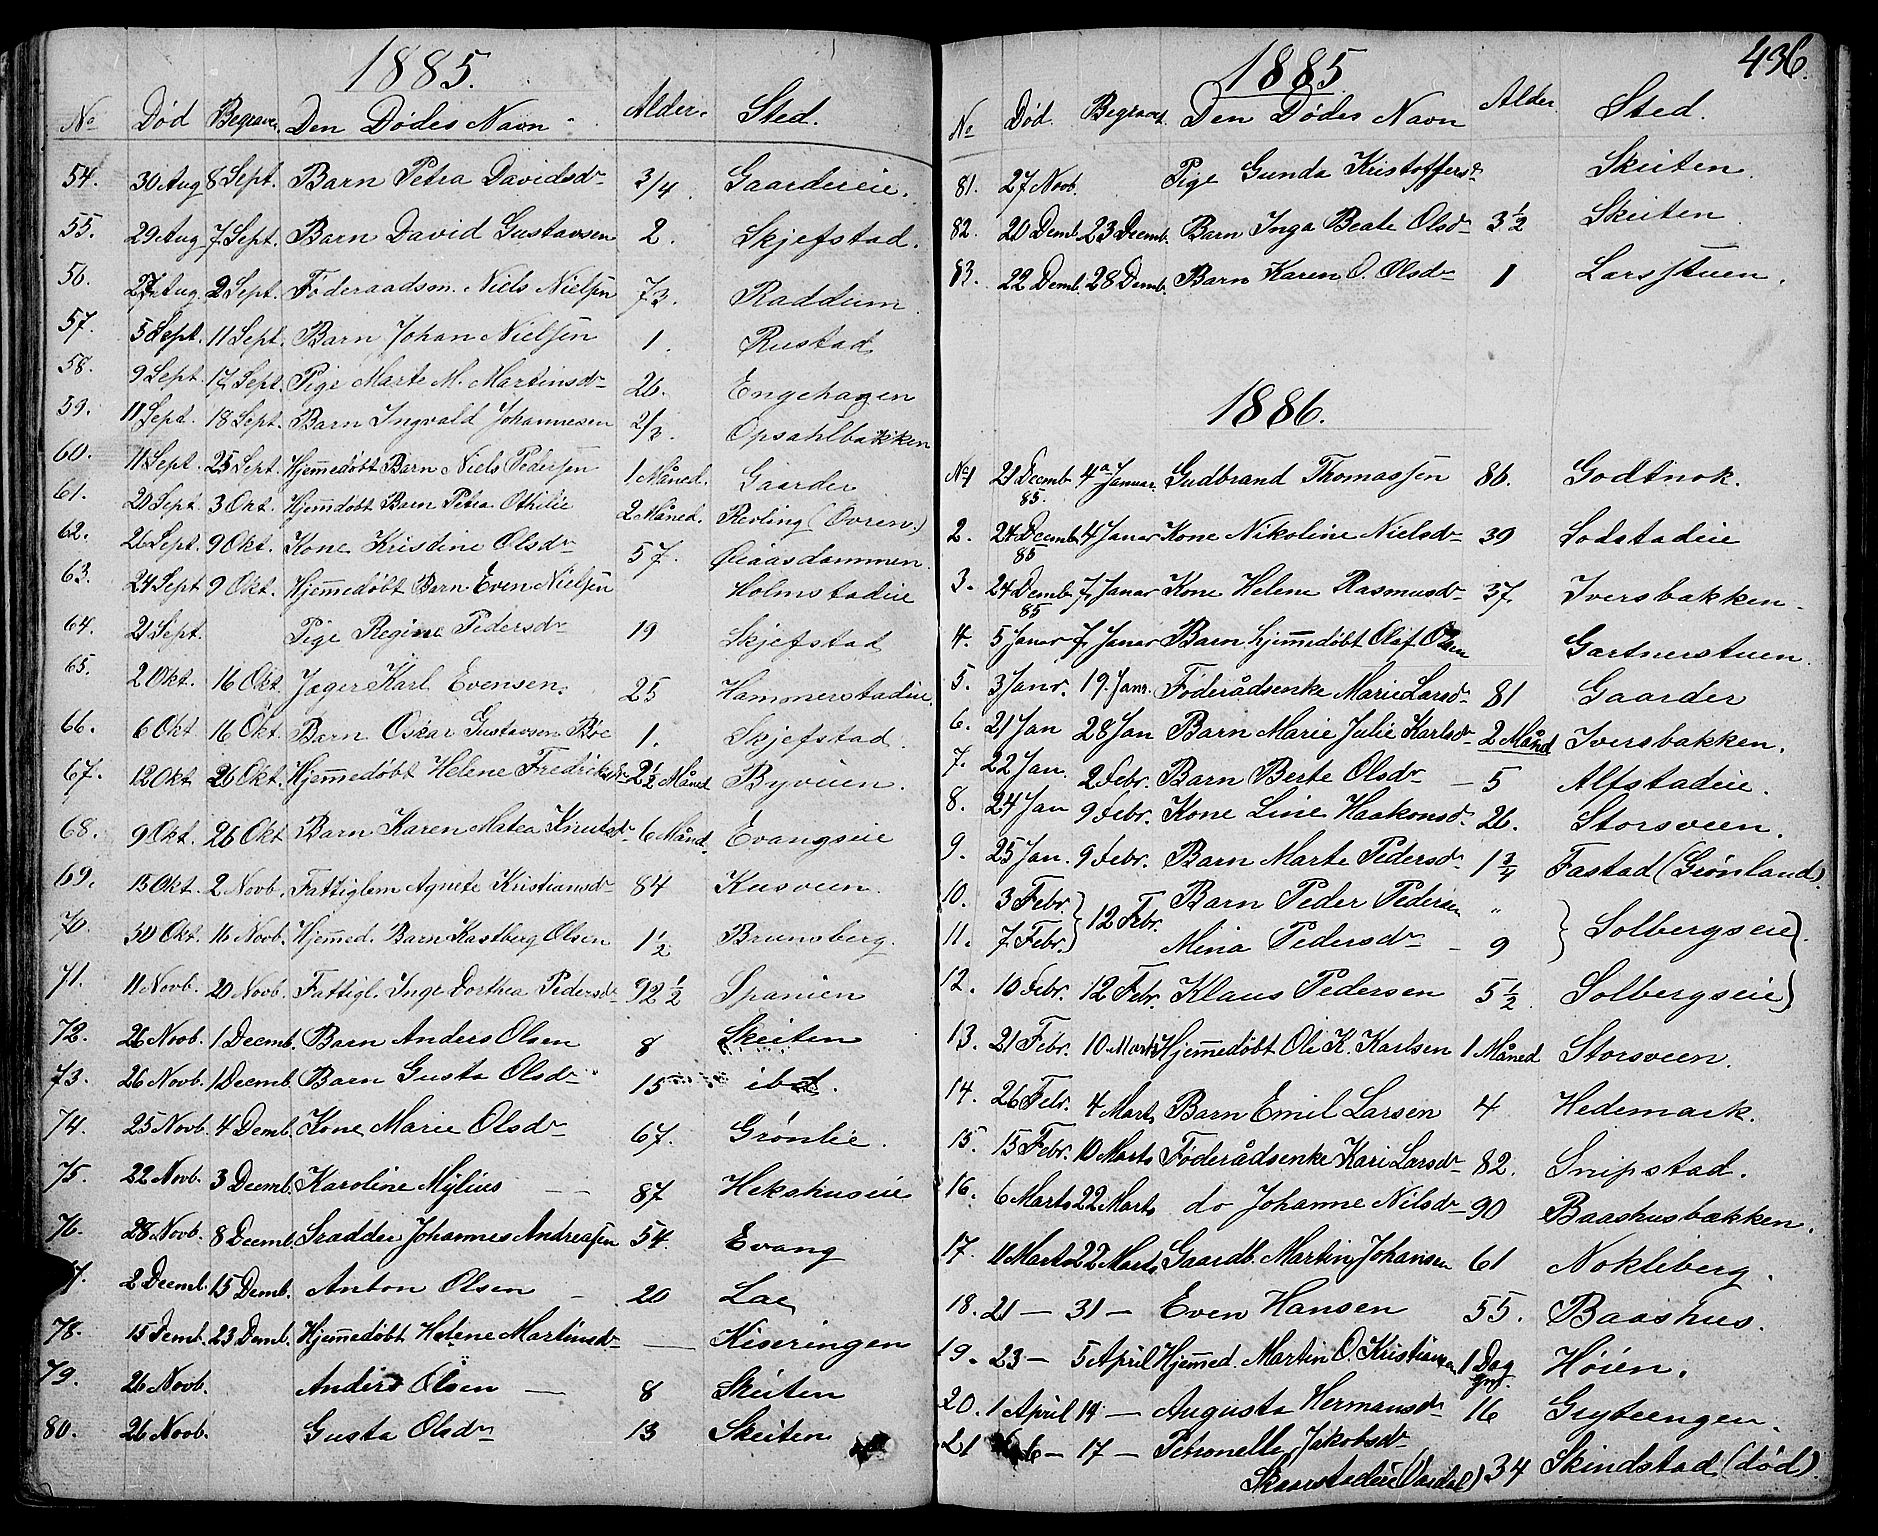 1885.
No Død Begravet Den Dødes Navn Alder. Sted.
54. 30 Aug 8 Sept. Barn Petra Davidsdr 3/4 Gaardereie.
55. 29 Aug 7 Sept. Barn David Gustavsen 2. Skjefstad.
56. 27 Aug 2 Sept. Föderaadsm. Niels Nielsen 73. Raddum
57. 5 Sept. 11 Sept. Barn Johan Nielsen 1. Rustad
58. 9 Sept. 17 Sept. Pige Marte M. Martinsdr 26. Engehagen
59. 11 Sept. 18 Sept. Barn Ingvald Johannesen 2/3. Opsahlbakken
60. 11 Sept. 25 Sept. Hjemmedöbt Barn Niels Pedersen 1 Måned. Gaarder
61. 20 Sept. 3 Okt. Hjemmdöbt Barn Petra Othilie 2 Måned. Revling (Övren.)
62. 26 Sept. 9 Okt. Kone Krisdine Olsdr 57.
63. 24 Sept 9 Okt. Hjemmedöbt Barn Even Nielsen Holmstadeie
64. 21 Sept. Pige Regine Pedersdr 19 Skjefstad
65. 2 Okt. 16 Okt. Jæger Karl Evensen. 25 Hammerstadeie.
66. 6 Okt 16 Okt. Barn Oscar Gustavsen Böe 1. Skjefstad.
67. 12 Okt 26 Okt. Hjemmedöbt Helene Fredriksdr 2 1/2 Måned Byveien.
68. 9 Okt. 26 Okt Barn Karen Matea Knutsdr 6 Månd. Evangseie
69. 15 Okt. 2 Novb. Fattiglem Agnete Kristiansdr 84 Kusveen.
70. 30 Okt. 16 Novb. Hjemmed. Barn Kastberg Olsen 1 1/2 Brunsberg.
71. 11 Novb. 20 Novb. Fattigl. Inge Dorthea Pedersdr 92 1/2 Spanien
72. 26 Novb. 1 Decmb. Barn Anders Olsen 8 Skeiten
73. 26 Novb. 1 Decmb. Barn Gusta Olsdr 15 ibd.
74. 25 Novb. 4 Demb. Kone Marie Olsdr 67. Grönlie.
75. 22 Novb. 3 Decmb. Karoline Mylius 87 Hekshuseie
76. 28 Novb. 8 Decmb. Johannes Andreasen 54. Evang
2 Decmb. 15 Demb. Anton Olsen 20 Lae
78. 15 Demb. 23 Demb. Hjemmedöbt Helene Martinsdr — Kiseringen
79. 26 Novb. Anders Olsen — 8 Skeiten
80. 26 Novb. Gusta Olsdr 13 Skeiten
436.
1885
No Død. Begravet. Den Dødes Navn Alder Sted.
81. 27 Novb. Pige Gunda Kristoffersdr Skeiten.
82. 20 Demb. 23 Decmb. Barn Inga Beate Olsdr 3 1/2 Skeiten.
83. 22 Demb. 28 Demb. Barn Karen O. Olsdr 1 Larsstuen.
1886.
No 1 21 Decmb 85. 4a Januar. Gudbrand Thomassen 86. Godtnok.
2. 24 Decemb 85 4 Janar Kone Nikoline Nielsdr 39 Lodstadeie
3. 24 Demb 85 7 Janar Kone Helene Rasmusdr 37 Iversbakken.
4. 5 Janar 7 Janar Barn hjemmedöbt Olaf Olsen Gartnerstuen.
5. 3 Janr. 19. Janr. Föderådsenke Marie Larsdr 81 Gaarder
6. 21 Jan 28 Jan Barn Marie Julie Karlsdr 2 Månd Iversbakken.
7. 22 Jan. 2 Febr. Barn Berte Olsdr — 5 Alfstadeie.
8. 24 Jan 9 Febr. Kone Line Haakonsdr. 26. Storsveen.
9. 25 Jan. 9 Febr. Barn Marte Pedersdr 1 3/4 Fastad (Grönland).
10. 3 Febr. } 12 Febr. Barn Peder Pedersen „ } Solbergseie).
11. 7 Febr. } Mina Pedersdr — 9
12. 10 Febr. 12 Febr. Klaus Pedersen 5 1/2 Solbergseie)
13. 21 Febr. 10 Marts Hjemmedöbt Ole K. Karlsen 1 Måned Storsveen.
14. 26 Febr. 4 Marts Barn Emil Larsen 4 Hedemark.
15. 15 Febr. 10 Marts Föderådsenke Kari Larsdr 82. Snipstad.
16. 6 Marts 22 Marts do Johanne Nilsdr 90 Baashusbakken.
17. 11 Marts 22 Marts Gaardb. Martin Johansen 61 Nokleberg.
18. 21 — 31 — Even Hansen 55. Baashus.
19. 23 — 5 April Hjemmed. Martin O. Kristiansen 1 Dag Höien.
20. 1 April 14 — Augusta Hermansdr 16 Gryteengen.
21 6 — 17 — Petronelle Jakobsdr
Skaarstadeie (Vardal) 34 Skindstad (död).